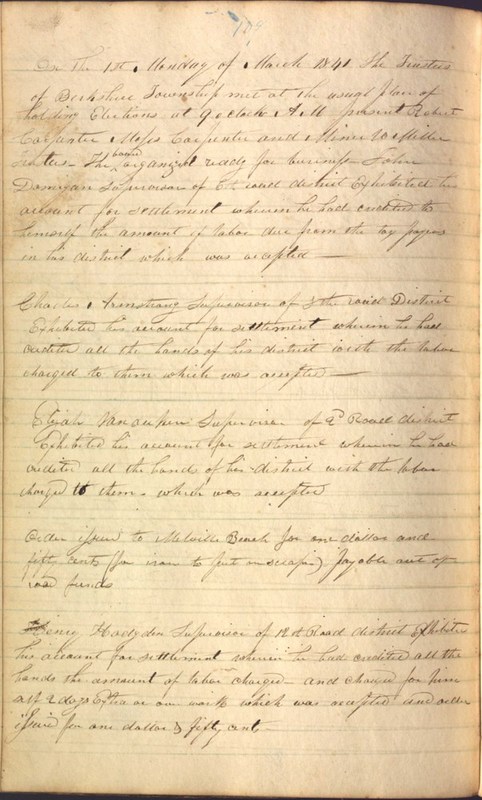 109
On the 1st Monday of March 1841 the Trustees
of Berkshire Township met at the usual place of
holding Elections at 9 oclock A.M present Robert
Carpenter Moses Carpenter and
Trustees. The board organized ready for business John
Domigan Supervisor of 6th road district Exhibited his
account for settlement wherein he had credited to
himself the amount of labor due from the tax payers
in his district which was accepted —
Charles Armstrong Supervisor of the road District
Exhibited his account for settlement wherein he had
credited all the hands of his district with the labor
charged to them which was accepted —
Elijah Supervisor of 2d Road district
Exhibited his account for settlement wherein he had
credited all the hands of his district with the labor
charged to them. which was accepted
Order issued to Melville Beach for one dollar and
fifty cents (for iron to put on scraper) payable out of
road funds
Henry Hodgden Supervisor of 12th Road district Exhibited
his account for settlement wherein he had credited all the
hands the amount of labor charged and charged for him
self 2 days Extra on own work which was accepted and order
issued for one dollar & fifty cents